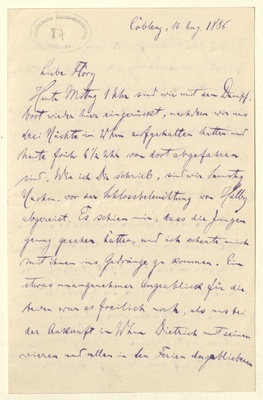 87
Coblenz, 10 Aug. 1886
Liebe Flory
Heute Mittag 1 Uhr sind wir mit dem Dampf-
boot wieder hier eingerückt, nachdem wir uns
drei Nächte in aufgehalten hatten und
heute früh 6½ Uhr von dort abgefahren
sind. Wie ich Dir schrieb, sind wir Samstag
Nachm. vor der Schlossbeleuchtung von Hdlbg
abgereist. Es schien mir, dass die Jungen
genug gesehen hatten, und ich scheute mich
mit ihnen ins Gedränge zu kommen. Ein
etwas unangenehmer Augenblick für die
Beiden war es freilich noch, als uns bei
der Ankunft in Dietrich mit seinen
vieren und allen in den Ferien dagebliebenen